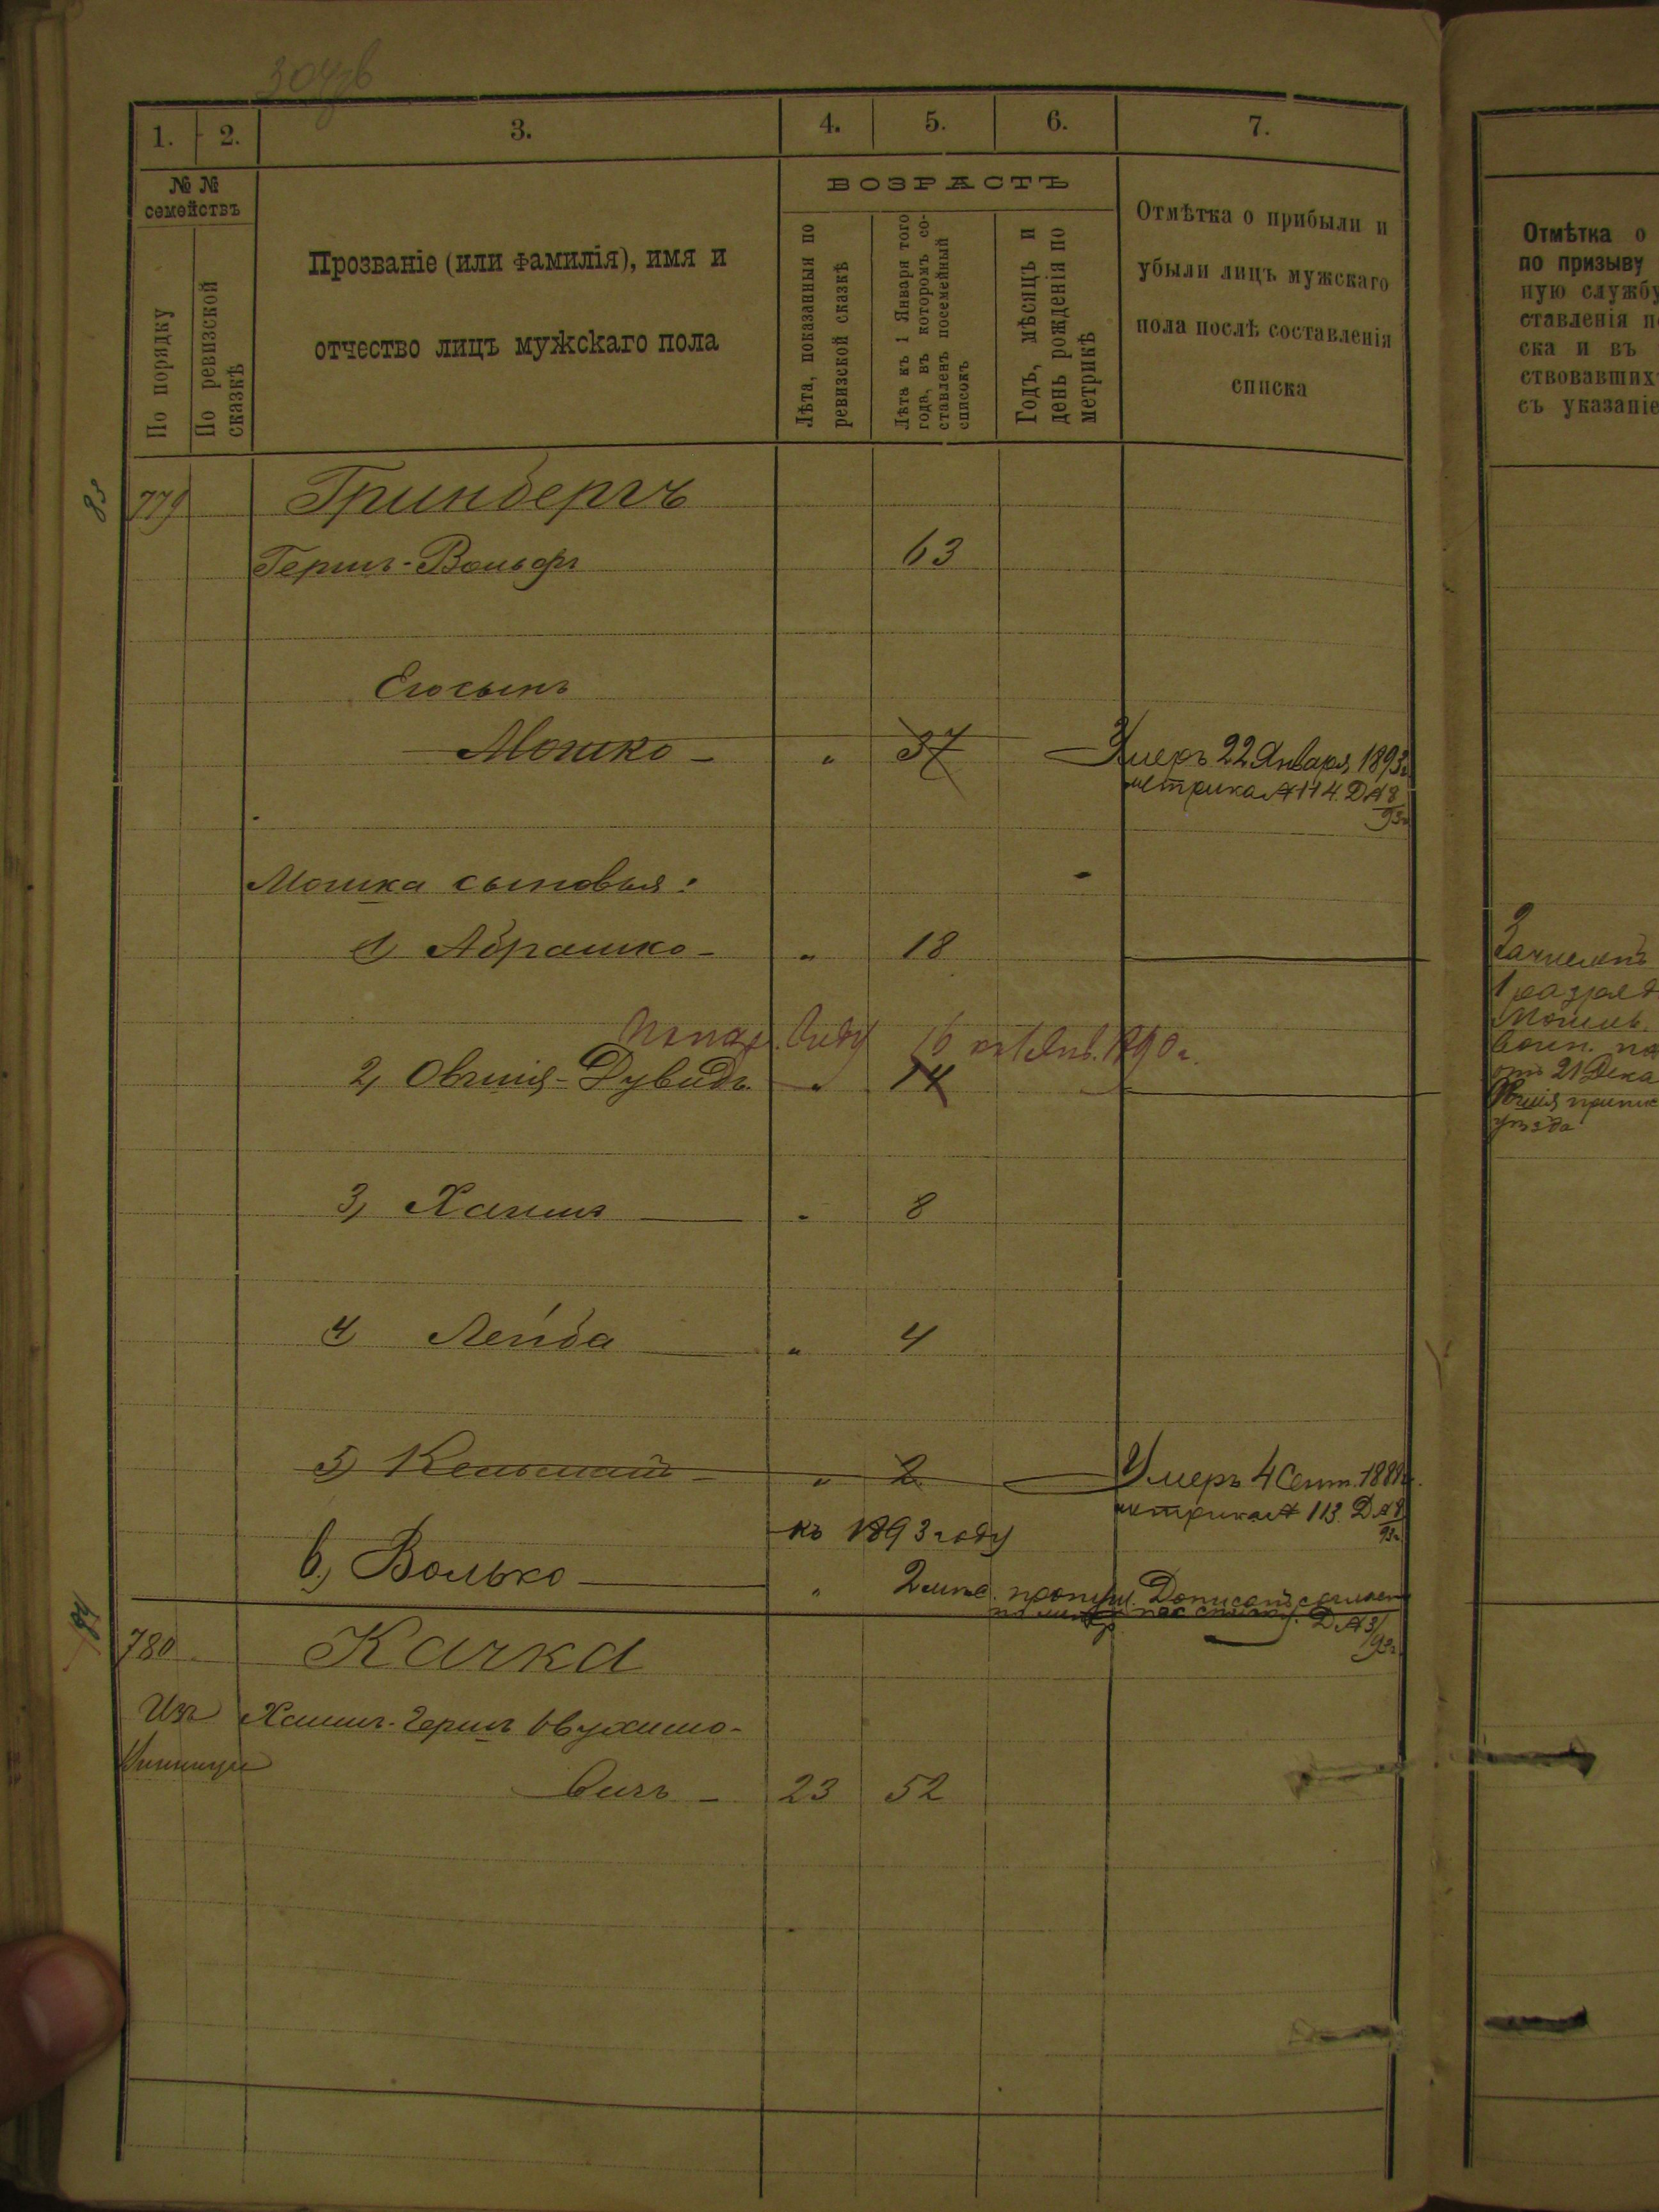 304об
1. 2. 3. 4. 5. 6. 7.
№ №
семействъ
По порядку
По ревизской
сказкѣ
Прозваніе (или фамилія), имя и
отчество лицъ мужскаго пола
ВОЗРАСТЪ
Лѣта, показанныя по
ревизской сказкѣ
Лѣта къ 1 Января того
года, въ которомъ со-
ставленъ посемейный
списокъ
Годъ, мѣсяцъ и
день рожденія по
метрикѣ
Отмѣтка о прибыли и
убыли лицъ мужскаго
пола послѣ составленія
списка
Отмѣтка о
по призыву
ную службу
ставленія
ска и въ
ствовавших
съ указаніе
83
779 Гринбергъ
Гершъ-Вольфъ 63
Его сынъ
Мошко - " 37 Умеръ 22 Января 1893г
метрика № 114. Д № 8/93г
Мошка сыновья:
1) Абрашко - " 18
Зачисленъ
1 разряд
воин.
отъ 21 Дека
Овшія
уѣзда
по виду 16 къ 1 Янв. 1890 г.
2) Овшія-Дувидъ " 14
3) Хаимъ " 8
4) Лейба " 4
5) Кельманъ - " 2 Умеръ 4 Сент. 1889г.
метрика № 113. Д № 8/93г
къ 1893 году
6) Волько " 2 лѣтъ. пропущ. Дописанъ
Д № 3/93г.
84
780 Качка
Изъ Хаимъ-Гершъ
Винницы
вичъ - 23 52